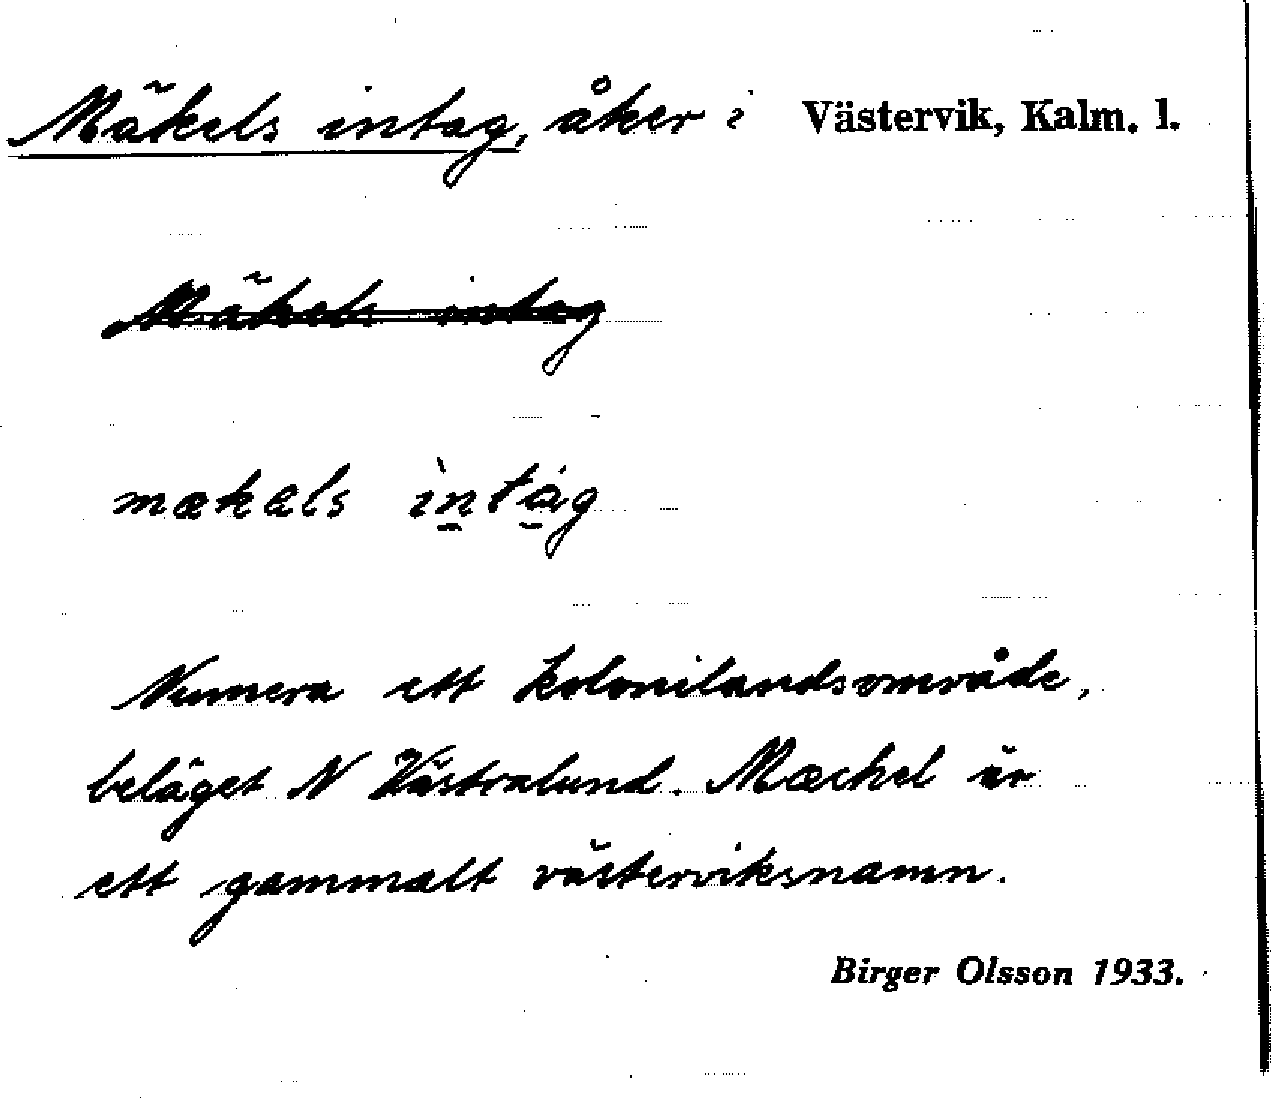 Mäkels intag, åker i Västervik, Kalm. l.
Mäkels intag
mækæls ìntág
Numera ett kolonilandsområde,
beläget N Västralund. Mæchel är
ett gammalt västerviksnamn.
Birger Olsson 1933.